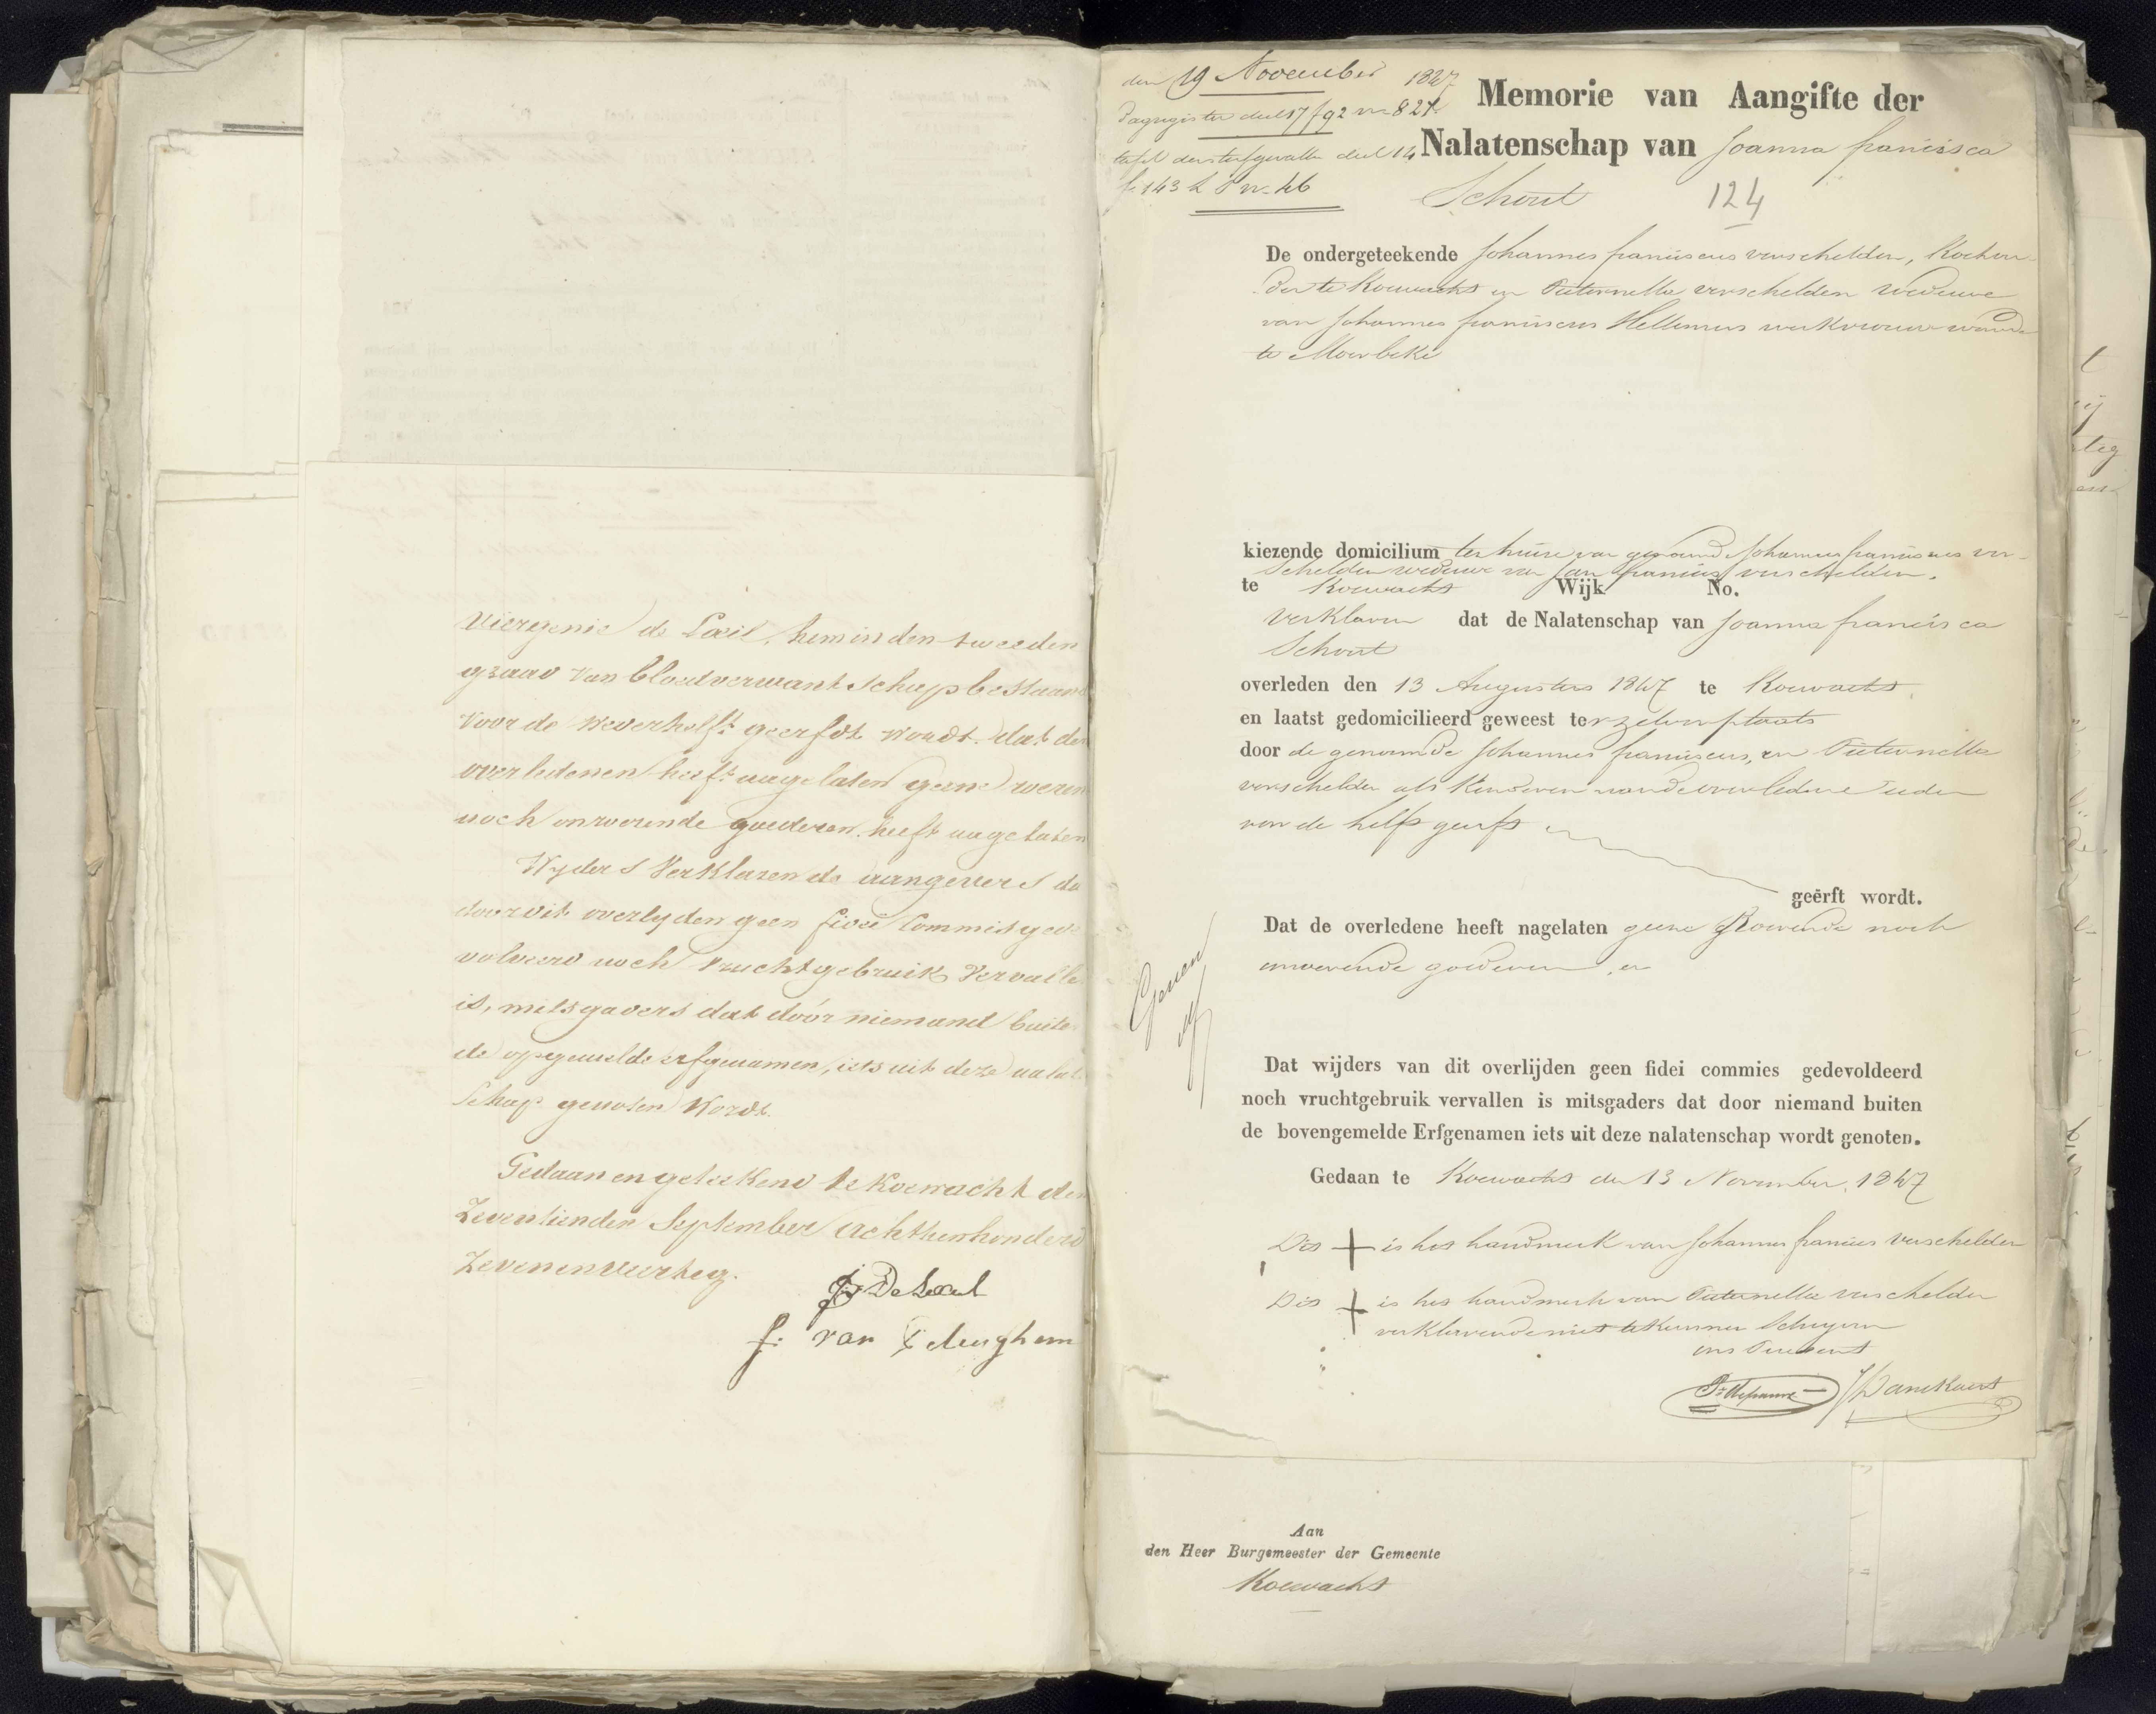 Viergenie de Loeil, hem in den tweeden
graad van bloedverwantschap bestaand
voor de wederhelft geerfdt wordt. dat de
overledenen heeft nagelaten geene roeren
noch onroerende goederen heeft nagelaten
Wyders Verklaren de aangevers da
door dit overlyden geen fidei Commis gede
volveerd noch vruchtgebruik Vervalle
is, mitsgaders dat dóór niemand buite
de opgemelde erfgenamen, iets uit deze nalat
schap genoten Wordt.
Gedaan en geteekend te Koewacht den
Zeventienden September Achttienhonderd
Zevenenveertig.
De Loeil
f: van
den 19 November 1847
Dagregister deel 17 f 92 no 821
tafel der sterfgevallen deel 14
fo 143 no 46
Memorie van Aangifte der
Nalatenschap van Joanna francisca
Schout 124
De ondergeteekende Johannes franciscus verschelden,
te Koewacht en Pieternella verschelden Weduwe
van Johannes franciscus Hellemus werkvrouw
te Moerbeke
kiezende domicilium ter huize van genaamde Johannes franciscus ver-
schelden weduwe van Jan francies verschelden.
te Koewacht Wijk No.
Verklaren dat de Nalatenschap van Joanna francisca
Schout
overleden den 13 Augustus 1847 te Koewacht,
en laatst gedomicilieerd geweest ter zelver plaats
door de genoemde Johannes franciscus, en Pieternella
verschelden als Kinderen van de overledene ieder
voor de helft geerft
geërft wordt.
Dat de overledene heeft nagelaten geene Roerende noch
onroerende goederen, en
Dat wijders van dit overlijden geen fidei commies gedevoldeerd
noch vruchtgebruik vervallen is mitsgaders dat door niemand buiten
de bovengemelde Erfgenamen iets uit deze nalatenschap wordt genoten.
Gedaan te Koewacht den 13 November 1847
Dit + is het handmerk van Johannes francies verschelden
Dit + is het handmerk van Pieternella verschelden
verklarende niet te Kunnen Schryven
ons Present
Aan
den Heer Burgemeester der Gemeente
Koewacht